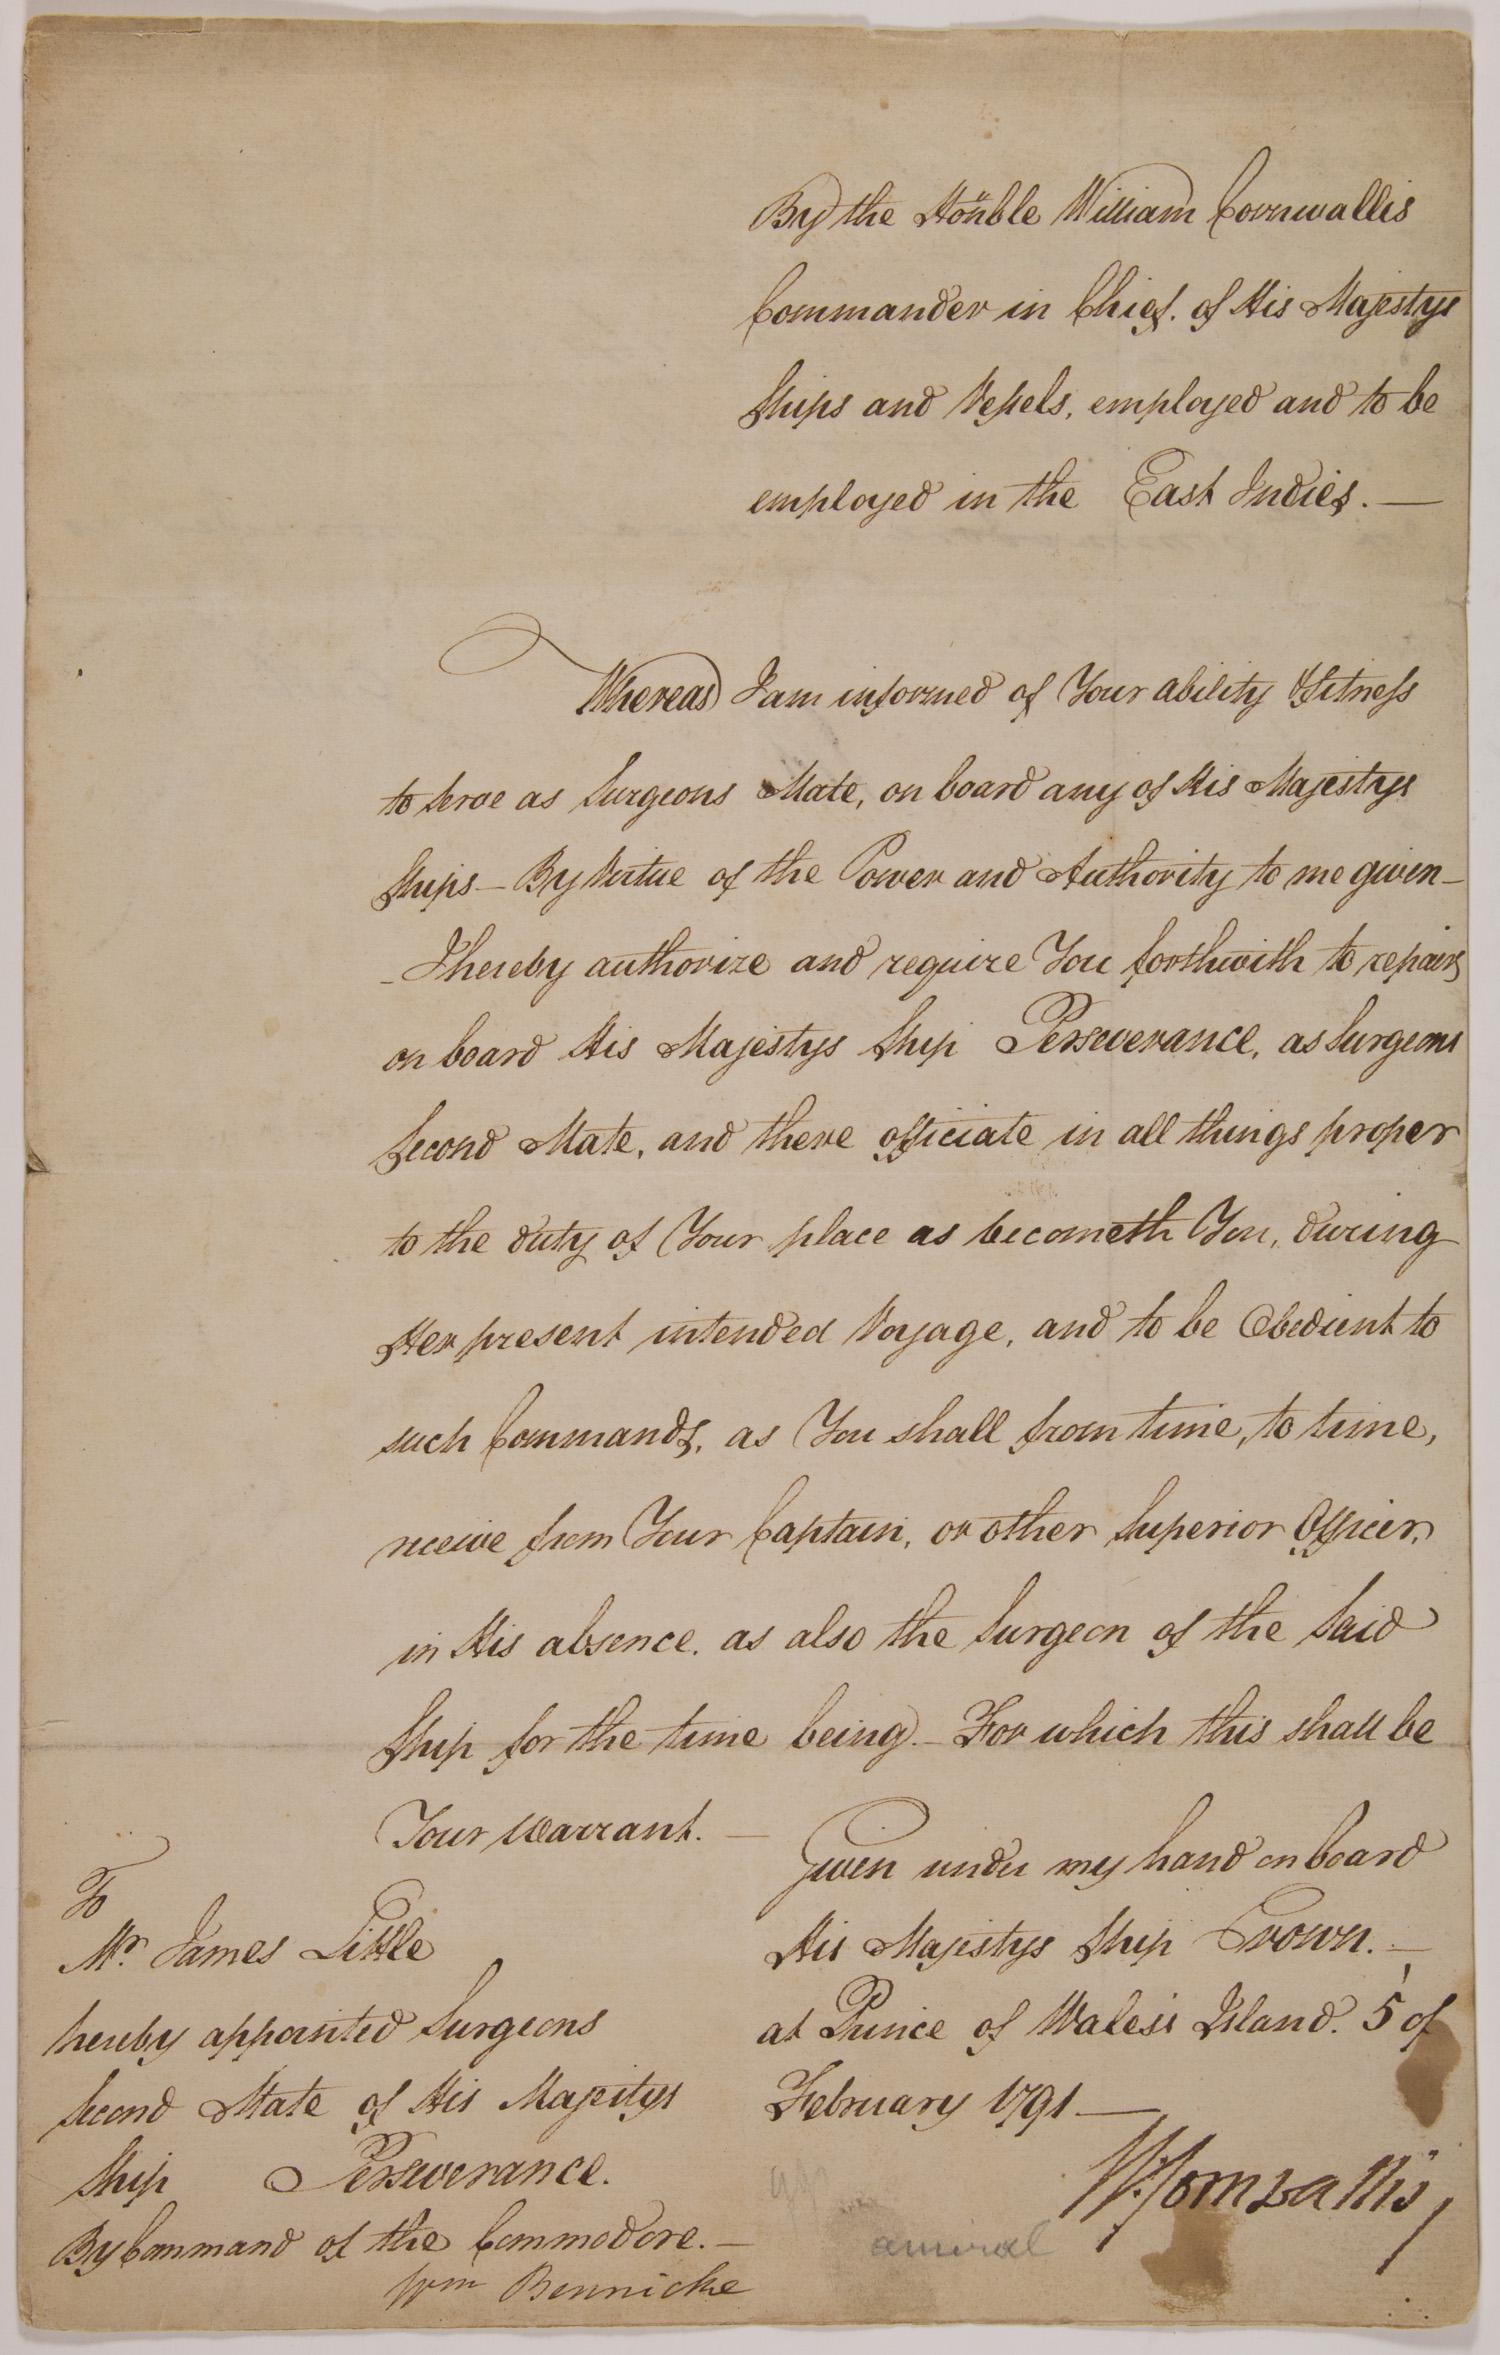 By the Honble William Cornwallis
Commander in Chief. of His Majestys
Ships and Vessels, employed and to be
employed in the East Indies. —
Whereas I am informed of Your ability & fitness
to serve as Surgeons Mate, on board any of His Majestys
Ships — By Virtue of the Power and Authority to me given —
— I hereby authorize and require You forthwith to repair
on board His Majestys Ship Perseverance, as Surgeons
Second Mate, and there officiate in all things proper
to the duty of Your place as becometh You, during
Her present intended Voyage, and to be Obedient to
such Commands, as You shall from time, to time,
receive from Your Captain, or other Superior Officer,
in His absence. as also the Surgeon of the Said
Ship for the time being. — For which this shall be
Your Warrant. —
Given under my hand on board
His Majestys Ship Crown. —
at Prince of Wales's Island. 5 of
February 1791 —
W: Cornwallis
To
Mr. James Little
hereby appointed Surgeons
Second Mate of His Majestys
Ship Perseverance.
By Command of the Commodore. —
Wm Bennicke
amiral